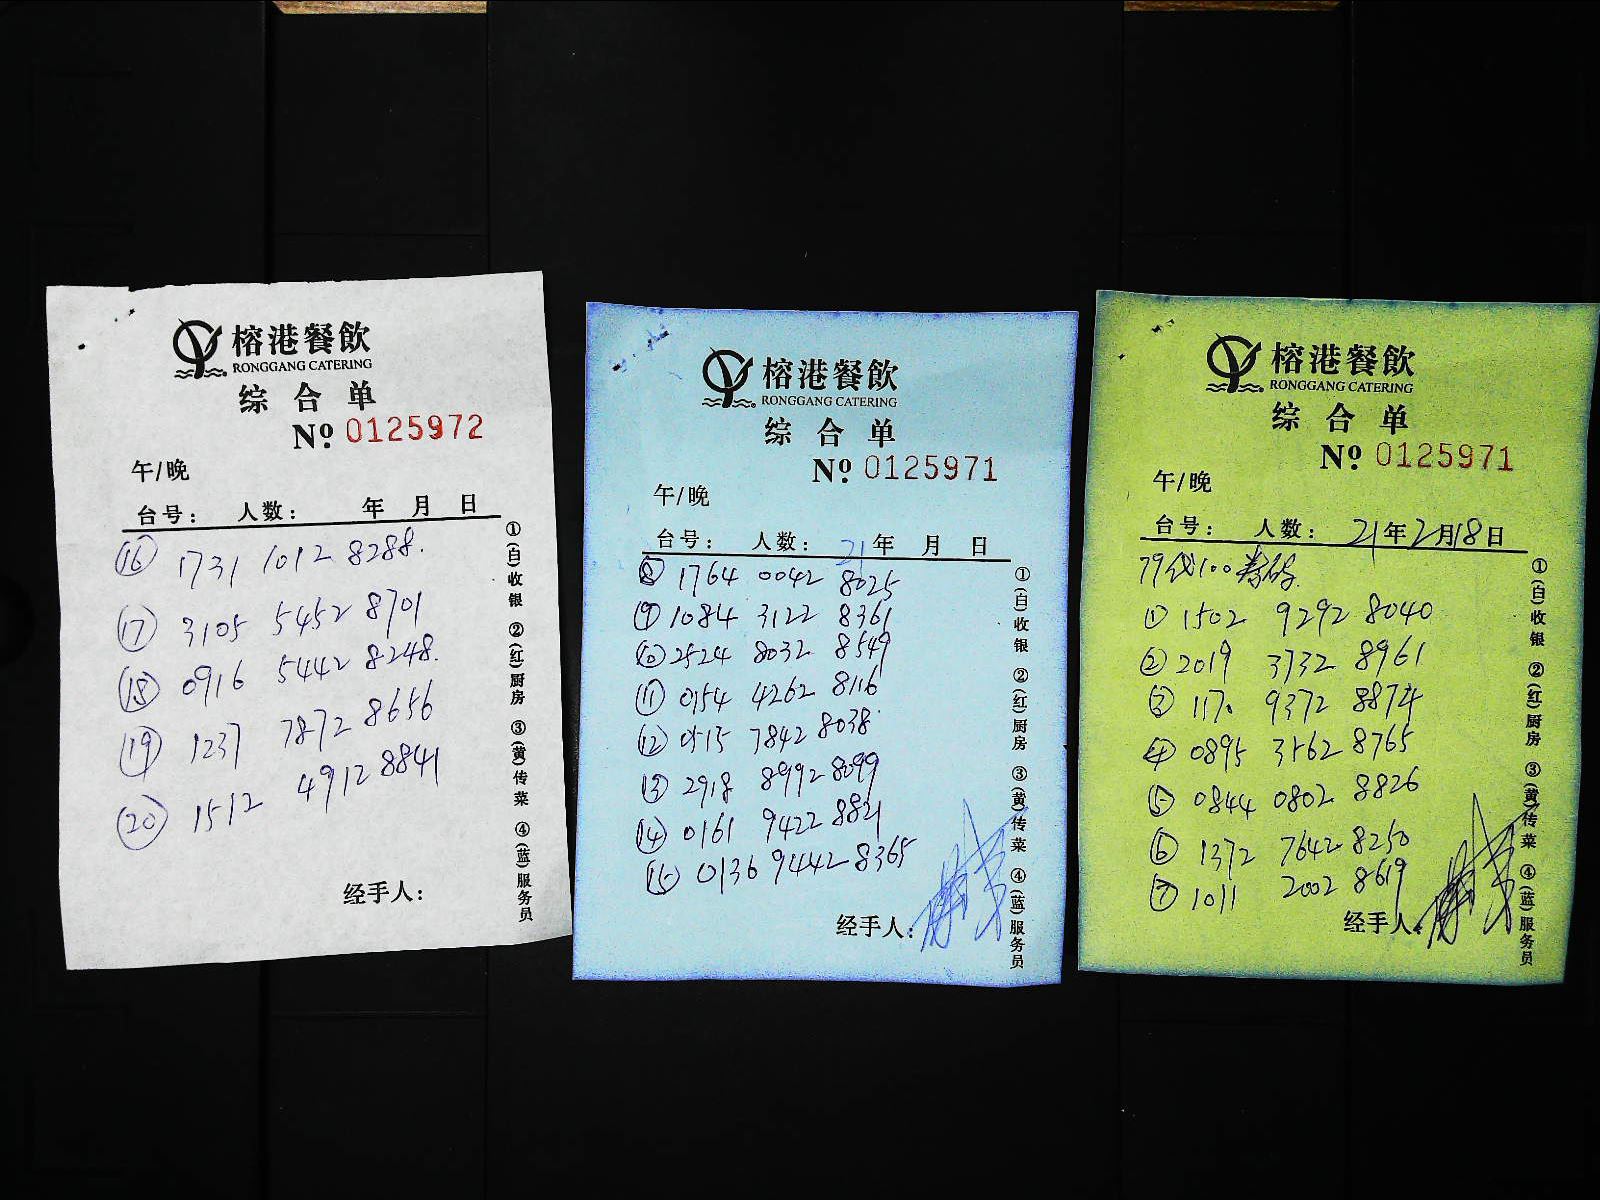 榕港餐飲
RONGGANG CATERING
综合单
Nº 0125972
午/晚
台号： 人数： 年 月 日
⑯ 1731 1012 8288.
⑰ 3105 5452 8701
⑱ 0916 5442 8248.
⑲ 1237 7872 8656
⑳ 1512 4912 8841
经手人：
①(白)收银 ②(红)厨房 ③(黄)传菜 ④(蓝)服务员
榕港餐飲
RONGGANG CATERING
综合单
Nº 0125971
午/晚
台号： 人数： 21年 月 日
⑧ 1764 0042 8025
⑨ 1084 3122 8361
⑩ 2524 8032 8549
⑪ 0154 4262 8116
⑫ 0515 7842 8038
⑬ 2918 8992 8099
⑭ 0161 9422 8821
⑮ 0136 9442 8365
经手人：
①(白)收银 ②(红)厨房 ③(黄)传菜 ④(蓝)服务员
榕港餐飲
RONGGANG CATERING
综合单
Nº 0125971
午/晚
台号： 人数： 21年2月18日
79代100
① 1502 9292 8040
② 2019 3732 8961
③ 1170 9372 8874
④ 0895 3562 8765
⑤ 0844 0802 8826
⑥ 1372 7642 8250
⑦ 1011 2002 8619
经手人：
①(白)收银 ②(红)厨房 ③(黄)传菜 ④(蓝)服务员